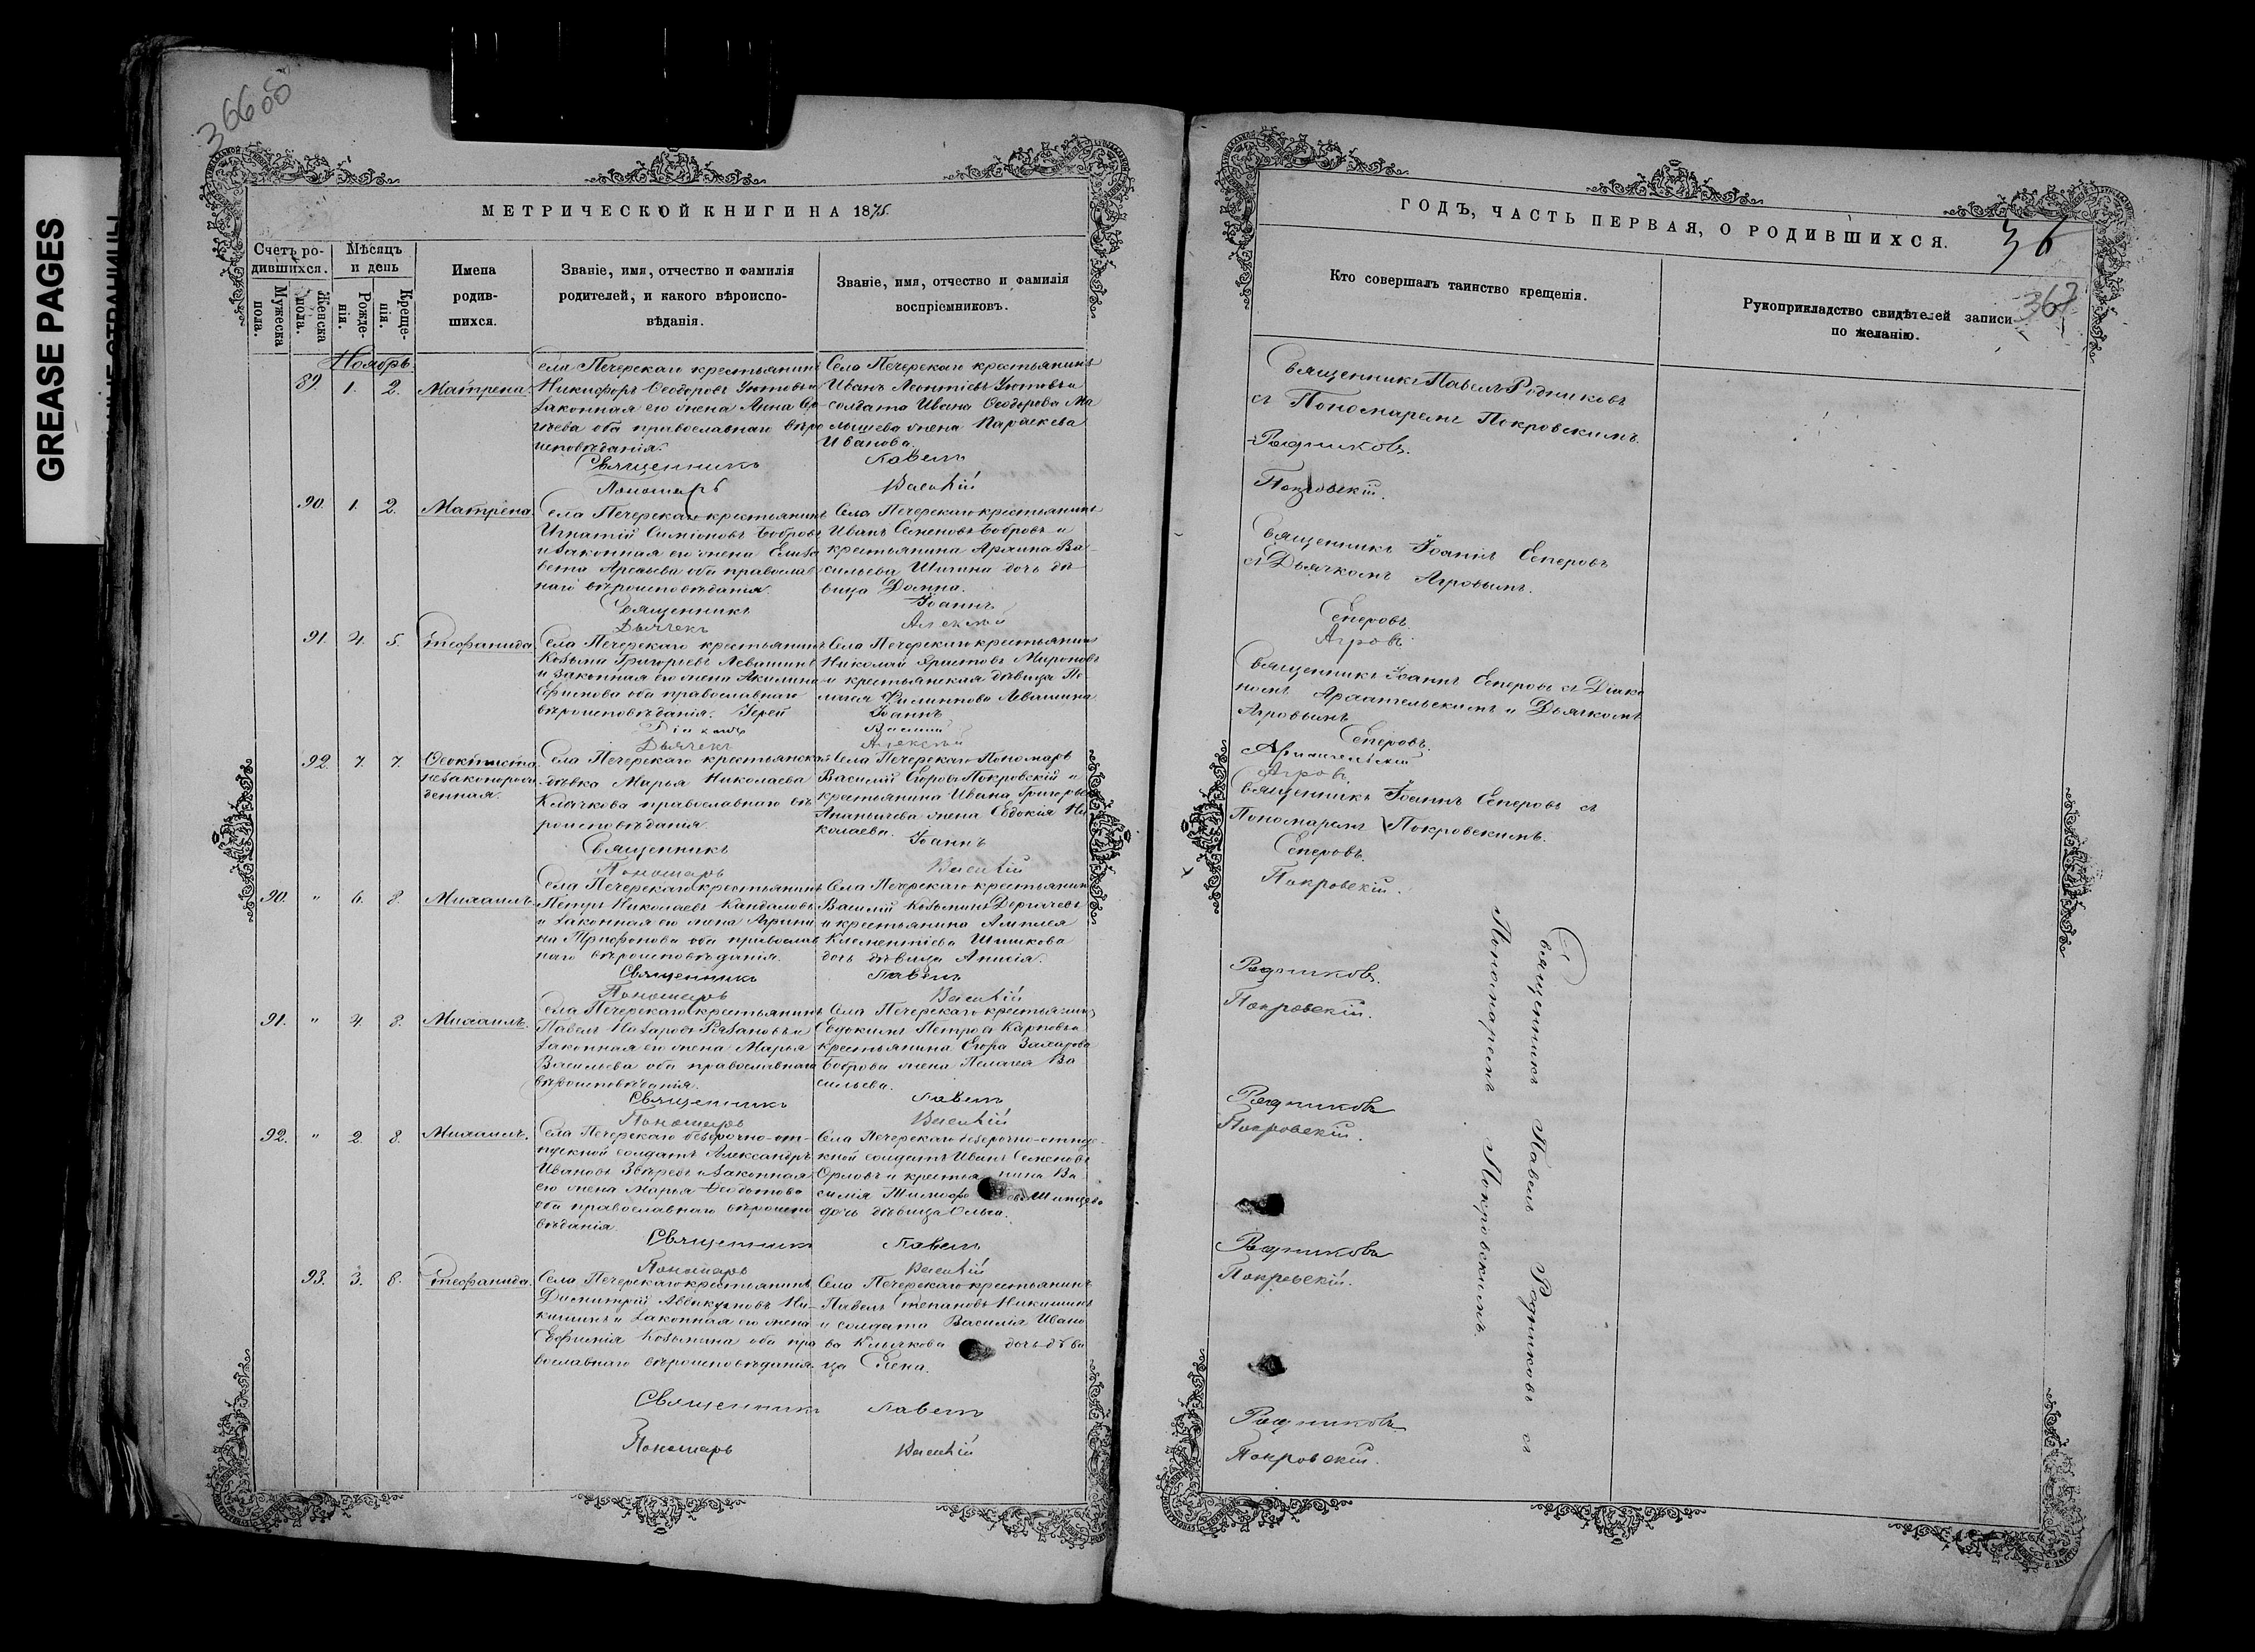 GREASE PAGES
36608
МЕТРИЧЕСКОЙ КНИГИ НА 1875
Счетъ родившихся.
Мужеска пола.
Женска пола.
Мѣсяцъ и день
Рожденія.
Крещенія.
Имена родившихся.
Званіе, имя, отчество и фамилія
родителей, и какого вѣроиспо-
вѣданія.
Званіе, имя, отчество и фамилія
воспріемниковъ.
Ноябрь.
89. 1. 2. Матрена.
Села Печерскаго крестьянинъ
Никифоръ Ѳеодоровъ Уютовъ и
законная его жена Анна Ер-
оба православнаго вѣро
исповѣданія.
Села Печерскаго крестьянинъ
Иванъ Леонтіевъ Уютовъ и
солдата Ивана Ѳеодорова Ма
лышева жена Параскева
Иванова.
Священникъ Павелъ
Пономарь Василій
90. 1. 2. Матрена.
Села Печерскаго крестьянинъ
Игнатій Симіоновъ Бобровъ
и законная его жена Елиза
вета оба православ
наго вѣроисповѣданія.
Села Печерскаго крестьянинъ
Иванъ Семеновъ Бобровъ и
крестьянина Архипа Ва-
сильева Шигина дочь дѣ
вица Домна.
Священникъ Іоаннъ
Дьячекъ Алексѣй
91. 4. 5. Стефанида.
Села Печерскаго крестьянинъ
Козьма Григорьевъ Левашинъ
и законная его жена Акилина
Ефимова оба православнаго
вѣроисповѣданія. Іерей
Села Печерскаго крестьянинъ
Николай Христовъ Мироновъ
и крестьянская дѣвица Пе
лагея Филиппова Левашина
Іоаннъ
Діаконъ Василій
Дьячекъ Алексѣй
92. 7. 7. Ѳеоктиста
незаконорож
денная.
Села Печерскаго крестьянская
дѣвка Марья Николаева
Клочкова православнаго вѣ
роисповѣданія.
Села Печерскаго Пономарь
Василій Егоровъ Покровскій и
крестьянина Ивана Григорьева
Ананьичева жена Евдокія Ни
колаева.
Священникъ Іоаннъ
Пономарь Василій
90. " 6. 8. Михаилъ.
Села Печерскаго крестьянинъ
Петръ Николаевъ Кандаловъ
и законная его жена Агрипи
на Трифонова оба православ
наго вѣроисповѣданія.
Села Печерскаго крестьянинъ
Василій Козьминъ Дергачевъ
и крестьянина Амплея
Клементіева Шишкова
дочь дѣвица Анисія.
Священникъ Павелъ
Пономарь Василій
91. " 4. 8. Михаилъ.
Села Печерскаго крестьянинъ
Павелъ Назаровъ Рязановъ и
законная его жена Марья
Васильева оба православнаго
вѣроисповѣданія.
Села Печерскаго крестьянинъ
Евдокимъ Петровъ Карповъ и
крестьянина Егора Захарова
Боброва жена Пелагея Ва
сильева.
Священникъ Павелъ
Пономарь Василій
92. " 2. 8. Михаилъ.
Села Печерскаго безсрочно-от-
пускной солдатъ Александръ
Ивановъ Звѣревъ и законная
его жена Марья Ѳеодотова
оба православнаго вѣроиспо
вѣданія.
Села Печерскаго безсрочно-отпус-
кной солдатъ Иванъ Семеновъ
Орловъ и крестьянина Ва
силія
дочь дѣвица Ольга.
Священникъ Павелъ
Пономарь Василій
93. 3. 8. Стефанида.
Села Печерскаго крестьянинъ
Димитрій Аввакумовъ Ни-
кишинъ и законная его жена
Евфимія Козьмина оба пра
вославнаго вѣроисповѣданія.
Села Печерскаго крестьянинъ
Павелъ Степановъ Никишинъ
и солдата Василія Ивано
ва Клычкова дочь дѣви
ца Елена.
Священникъ Павелъ
Пономарь Василій
ГОДЪ, ЧАСТЬ ПЕРВАЯ, О РОДИВШИХСЯ.
36
367
Кто совершалъ таинство крещенія.
Рукоприкладство свидѣтелей записи
по желанію.
Священникъ Павелъ Родниковъ
съ Пономаремъ Покровскимъ.
Родниковъ.
Покровскій.
Священникъ Іоаннъ Сеперовъ
съ Дьячкомъ Агровымъ.
Сеперовъ.
Агровъ
Священникъ Іоаннъ Сеперовъ съ Діако
номъ Архангельскимъ и Дьячкомъ
Агровымъ
Сеперовъ.
Архангельскій
Агровъ.
Священникъ Іоаннъ Сеперовъ съ
Пономаремъ Покровскимъ.
Сеперовъ.
Покровскій.
Священникъ Павелъ Родниковъ съ
Пономаремъ Покровскимъ.
Родниковъ.
Покровскій.
Родниковъ
Покровскій.
Родниковъ
Покровскій.
Родниковъ
Покровскій.